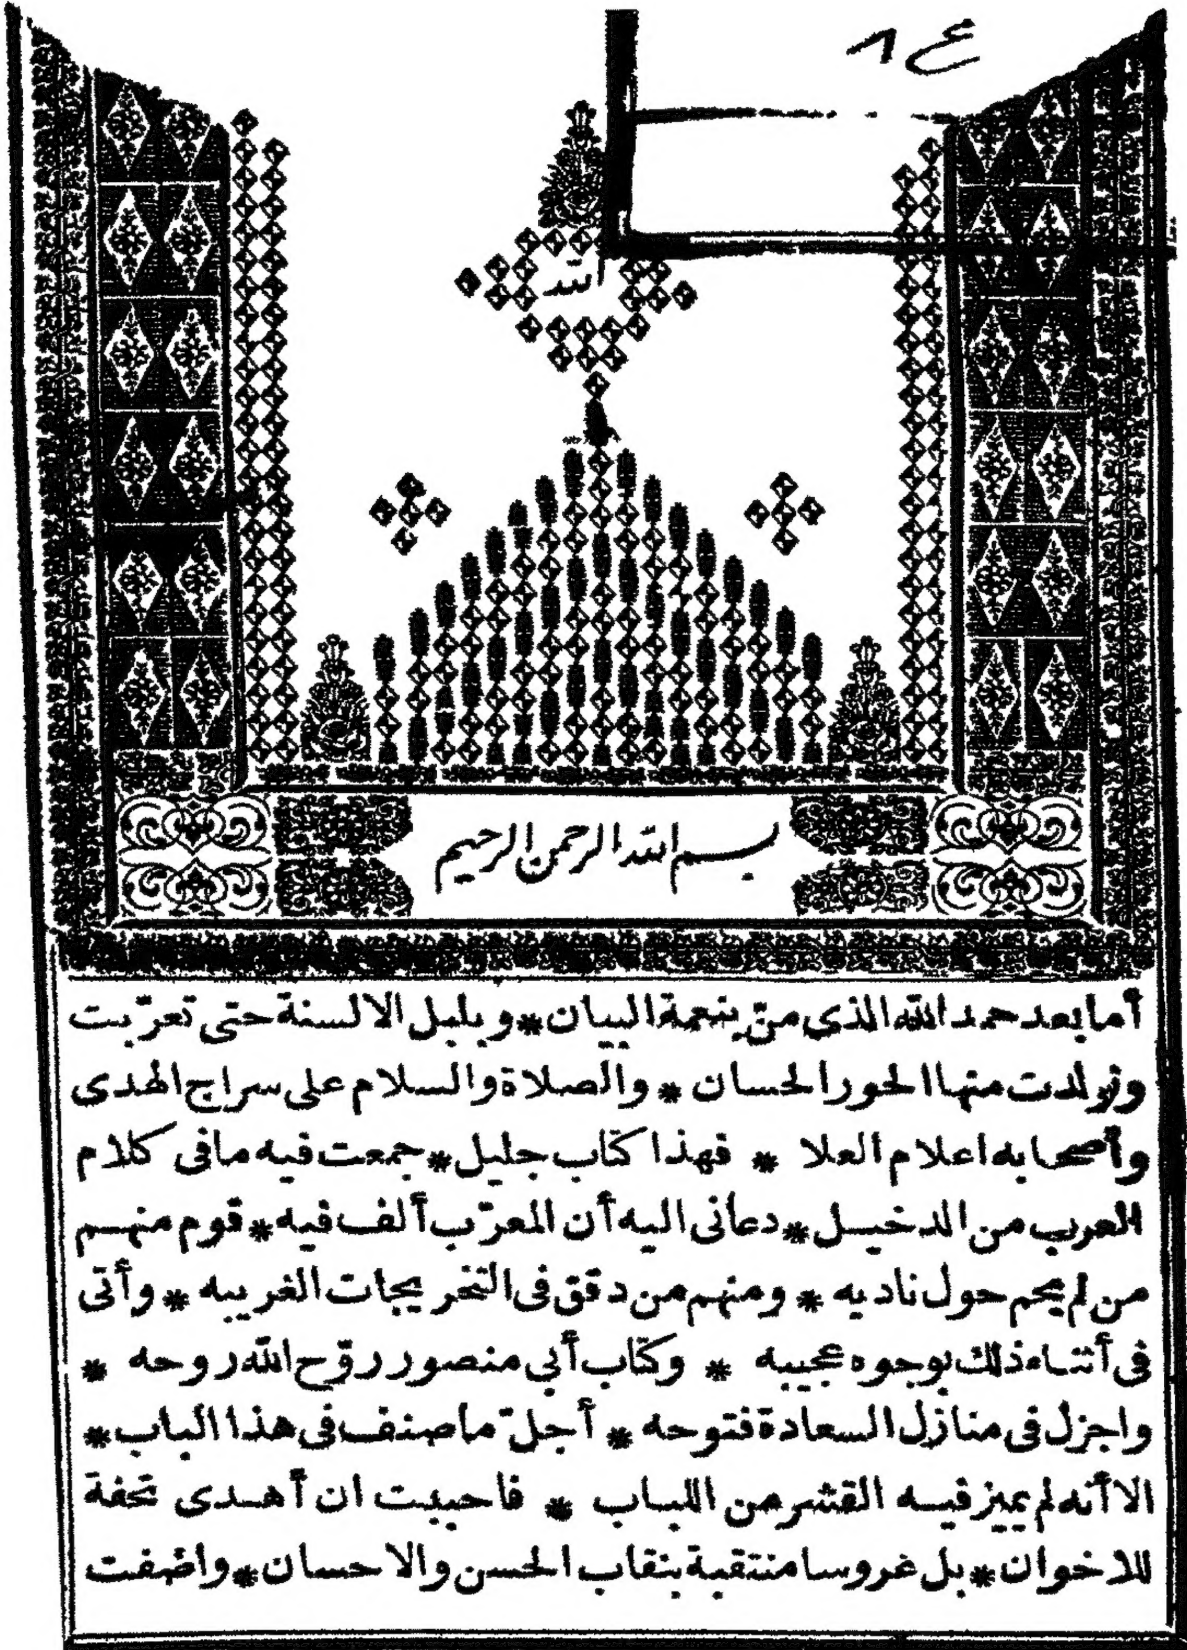 ع ٨
الله
بسم الله الرحمن الرحيم
أما بعد حمد الله الذى من بنعمة البيان * وبلبل الالسنة حتى تعرّبت
وتولدت منها الحور الحسان * والصلاة والسلام على سراج الهدى
وأصحابه اعلام العلا * فهذا كتاب جليل * جمعت فيه مافى كلام
العرب من الدخيل * دعانى اليه أن المعرّب ألف فيه * قوم منهم
من لم يحم حول ناديه * ومنهم من دقق فى التخريجات الغريبه * وأتى
فى أثناء ذلك بوجوه عجيبه * وكتاب أبى منصور روّح الله روحه *
واجزل فى منازل السعادة فتوحه * أجلّ ما صنف فى هذا الباب *
الا أنه لم يميز فيه القشر من اللباب * فاحببت ان أهدى تحفة
للاخوان * بل عروسا منتقبة بنقاب الحسن والاحسان * واضفت